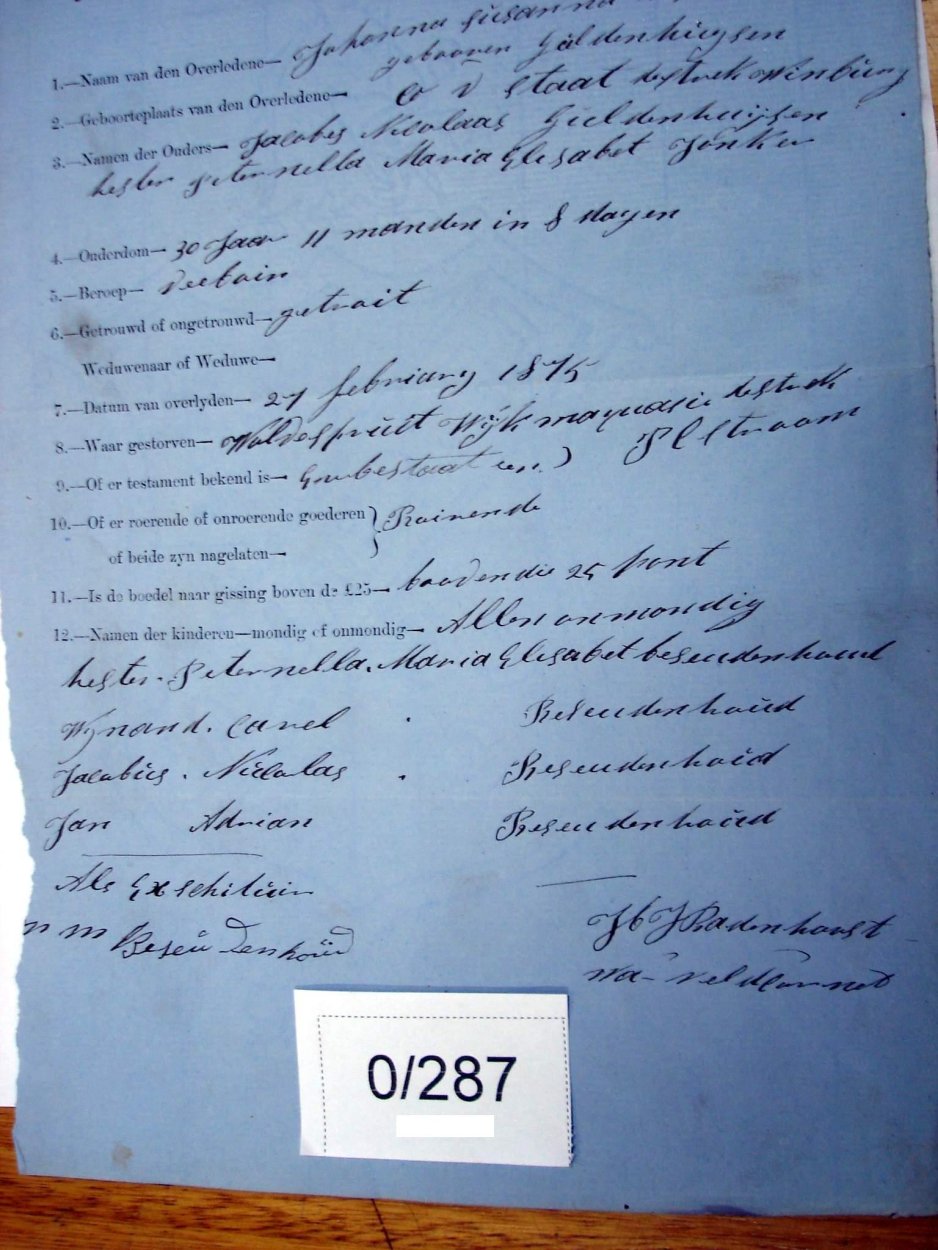 1.—Naam van den Overledene— Johanna Susanna
gebooren Guldenhuysen
2.—Geboorteplaats van den Overledene— O V Staat destrek Winburg
3.—Namen der Ouders— Jacobus Nicolaas Guldenhuijsen
hester peternella Maria Elisabet Jonker
4.—Ouderdom— 30 Jaar 11 manden in 8 dagen
5.—Beroep—
6.—Getrouwd of ongetrouwd— getrait
Weduwenaar of Weduwe—
7.—Datum van overlyden— 27 februarij 1875
8.—Waar gestorven— Wijk destrek
9.—Of er testament bekend is— een) Straom
10.—Of er roerende of onroerende goederen } Roirende
of beide zyn nagelaten—
11.—Is de boedel naar gissing boven de £25— boovden die 25 pont
12.—Namen der kinderen—mondig of onmondig— Allen onmondig
hester. Peternella. Maria Elisabet beseudenhoud
Wynand. Carel . Beseudenhoud
Jacobus. Nicolas . Beseudenhoud
Jan Adrian Beseudenhoud
Als Exsekituir
Beseudenhoud
J Radenhorst
wa- veldCornet
0/287